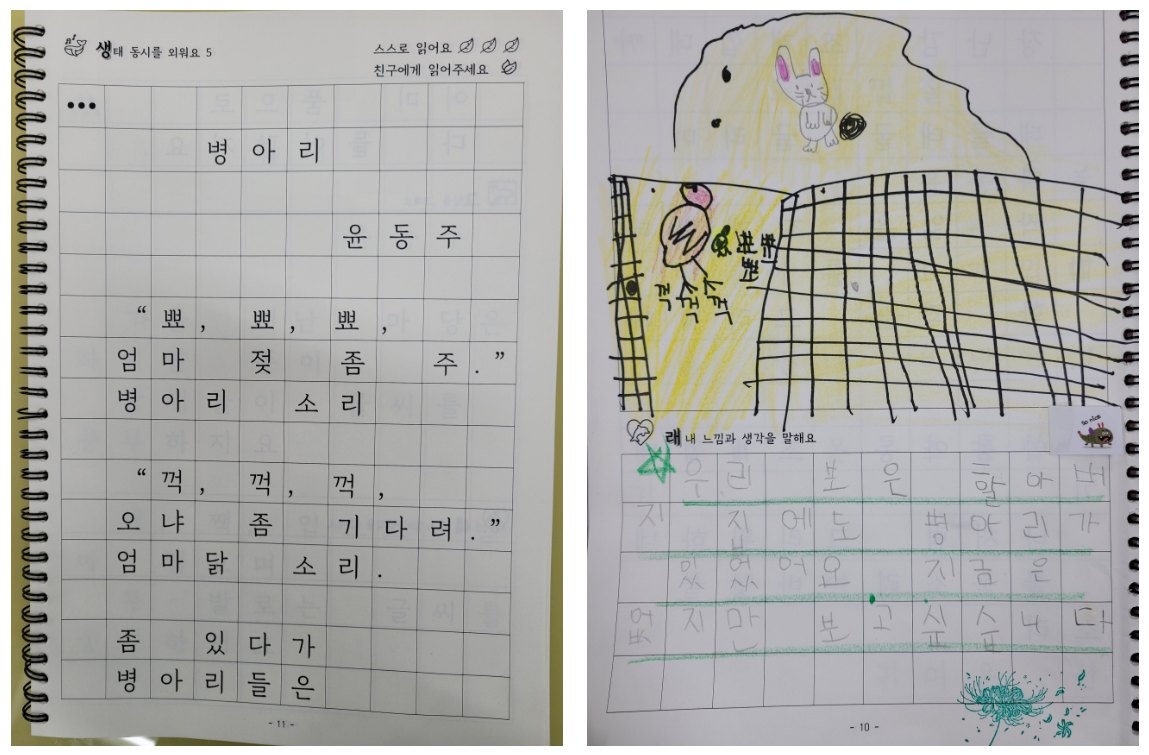 생태 동시를 외워요 5
스스로 읽어요
친구에게 읽어주세요
•••
병아리
윤동주
“뾰, 뾰, 뾰,
엄마 젖 좀 주.”
병아리 소리
“꺽, 꺽, 꺽,
오냐 좀 기다려.”
엄마닭 소리.
좀 있다가
병아리들은
- 11 -
so nice
래 내 느낌과 생각을 말해요
우리 보은 할아버
지 집에도 병아리가
있었어요 지금은
없지만 보고싶습니다
- 10 -